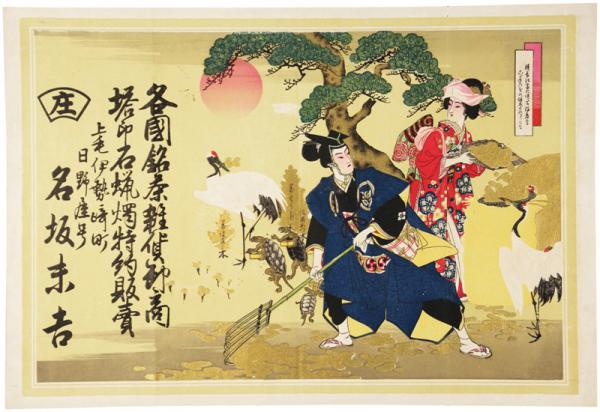 各國銘茶雜貨卸商
塔印石蝋燭特約販賣
上毛伊勢崎町
日野屋号
庄
名坂末吉